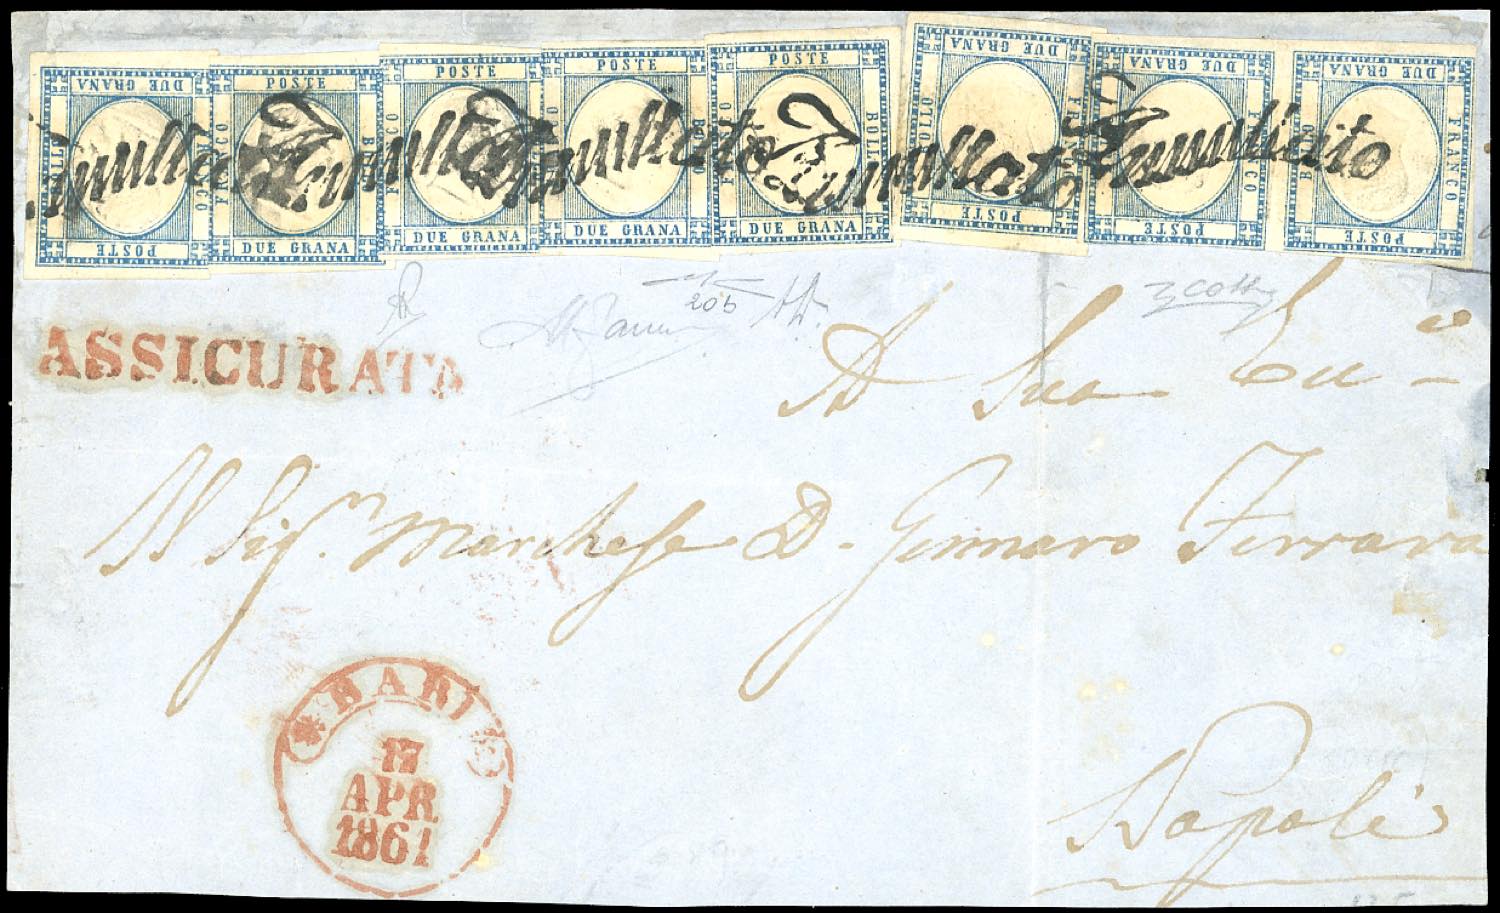 DUE GRANA FRANCO BOLLO POSTE
POSTE FRANCO BOLLO DUE GRANA
POSTE FRANCO BOLLO DUE GRANA
POSTE FRANCO BOLLO DUE GRANA
POSTE FRANCO BOLLO DUE GRANA
DUE GRANA BOLLO FRANCO POSTE
DUE GRANA BOLLO FRANCO POSTE
DUE GRANA BOLLO FRANCO POSTE
Annullato Annullato Annullato Annullato Annullato
20b
ASSICURATA
A Sua
Il Sigr. Marchese D. Gennaro Ferrara
BARI
17
APR
1861
Napoli